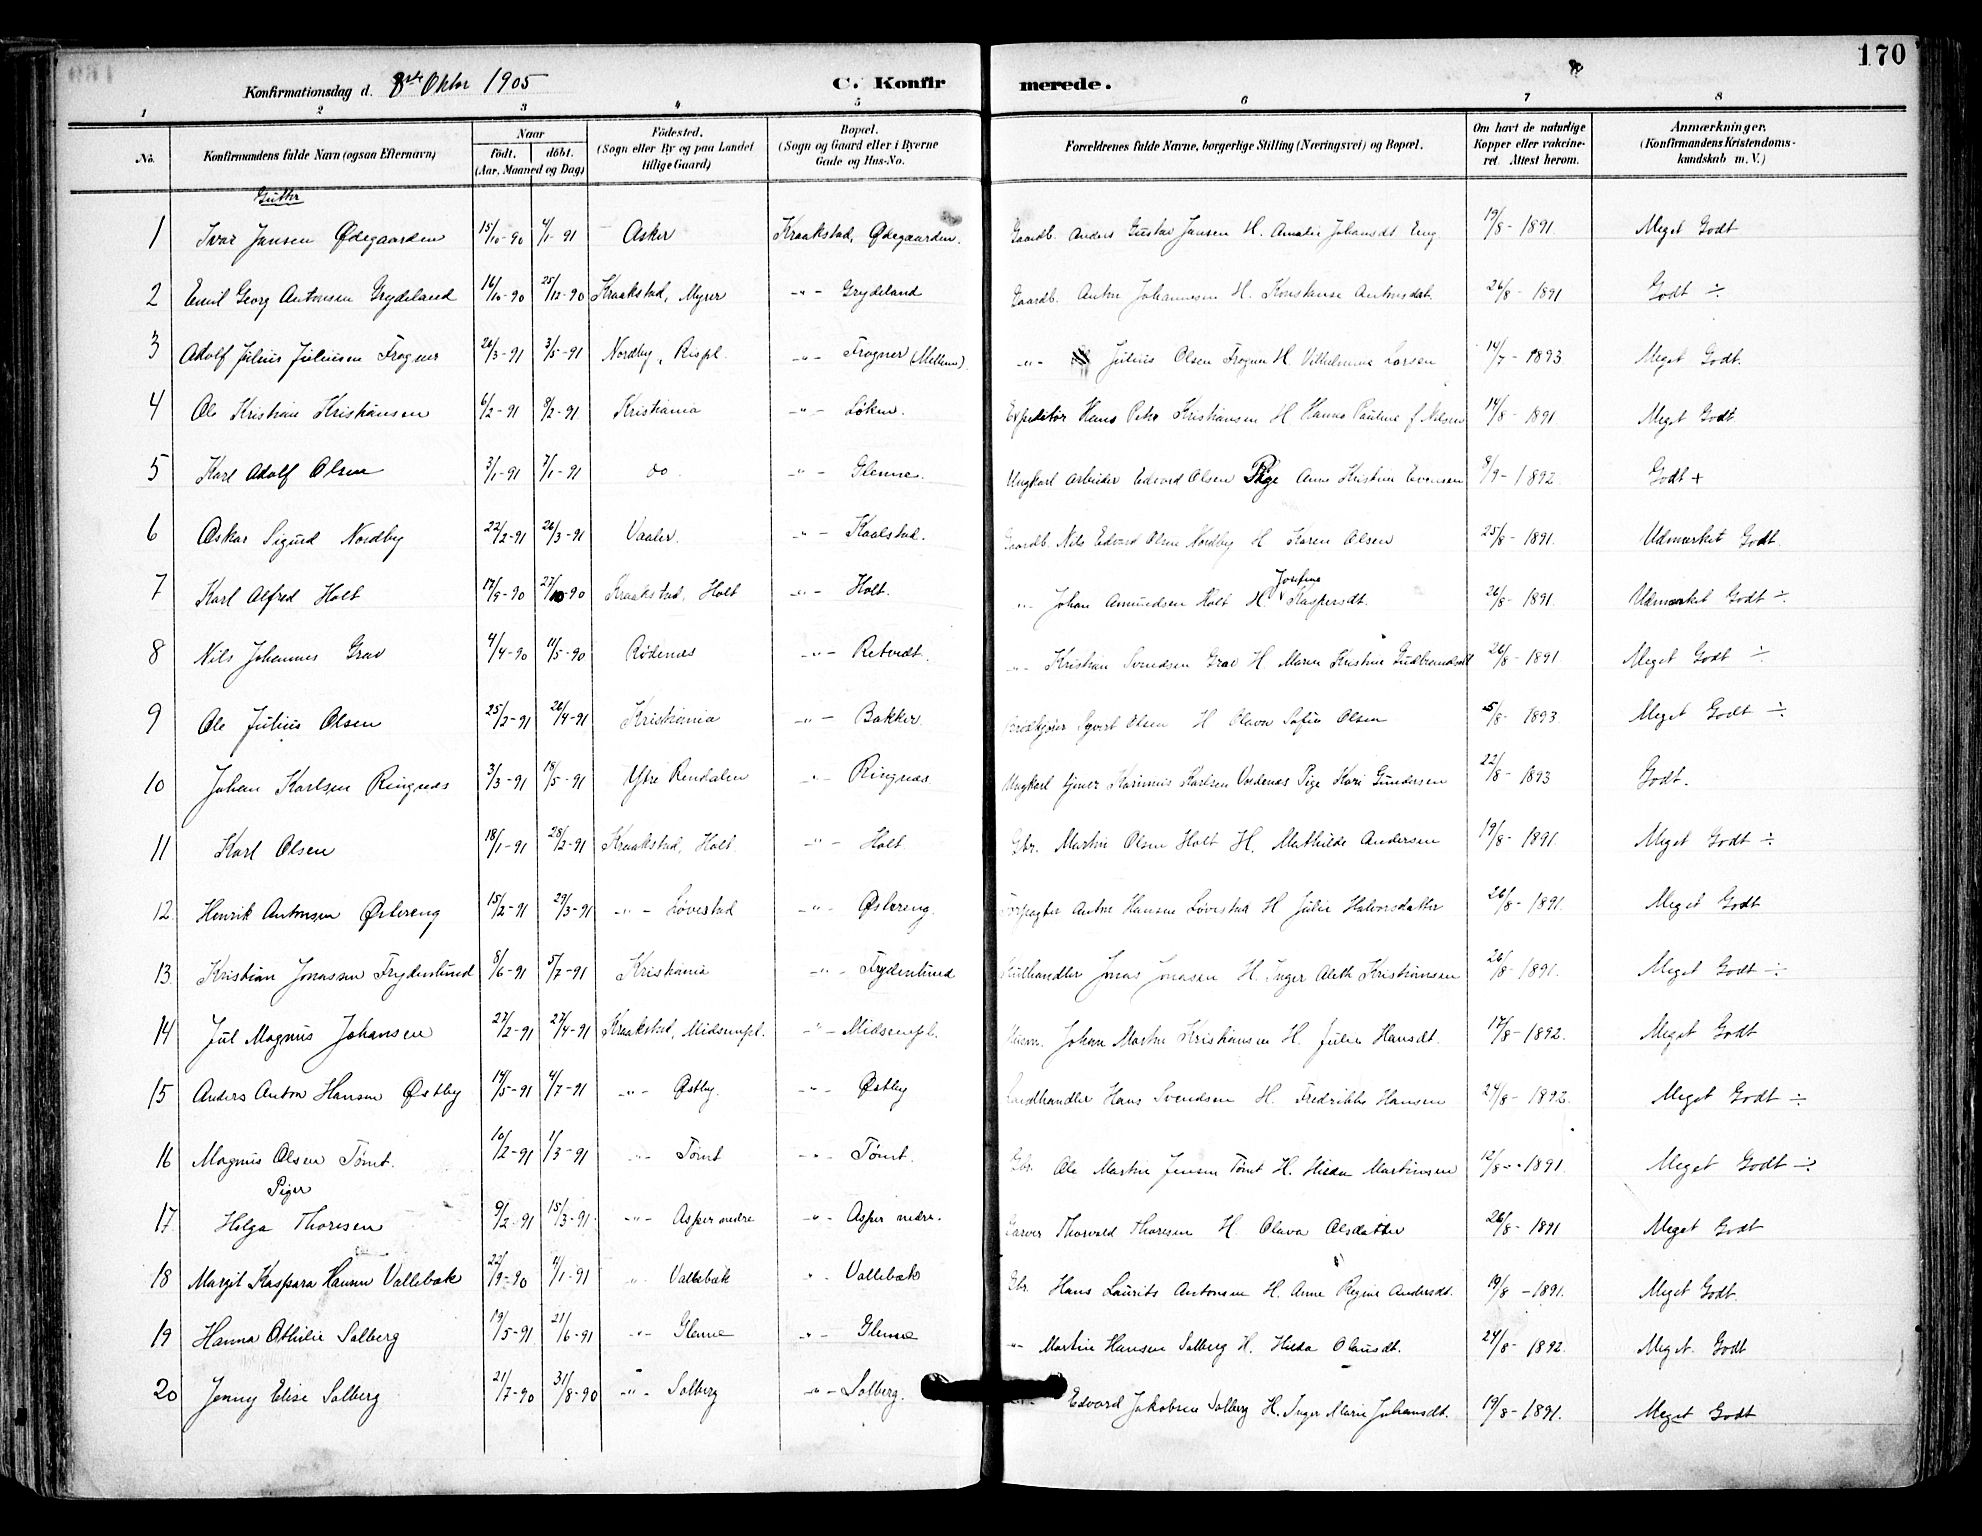 170
Konfirmationsdag d. 8de Oktbr 1905 C. Konfirmerede.
1 2 3 4 5 6 7 8
No. Konfirmandens fulde Navn (ogsaa Efternavn) Naar født. døbt. (Aar, Maaned og Dag) Fødested. (Sogn eller By og paa Landet tillige Gaard) Bopæl. (Sogn og Gaard eller i Byerne Gade og Hus-No. Forældrenes fulde Navne, borgerlige Stilling (Næringsvei) og Bopæl. Om havt de naturlige Kopper eller vakcineret. Attest herom. Anmærkninger. (Konfirmandens Kristendomskundskab m. V.)
Gutter
1 Ivar Jansen Ødegaarden 15/10-90 4/1-91 Asker Kraakstad, Ødegaarden. Gaardb. Anders Gustav Jansen H. Amalie Johansdt Eng 19/8-1891. Meget Godt
2 Emil Georg Antonsen Grydeland 16/10-90 25/12-90 Kraakstad, Myrer -"- Grydeland Gaardb. Anton Johannesen H. Konstanse Antonsdat. 26/8-1891 Godt ÷
3 Adolf Julius Juliussen Frogner 26/3-91 3/5-91 Nordby, Rispl. -"- Frogner (Mellem) -"- Julius Olsen Frogner H Vilhelmine Larsen 14/7-1893 Meget Godt.
4 Ole Kristian Kristiansen 6/2-91 8/2-91 Kristiania -"- Løken. Expeditør Hans Peter Kristiansen H Hanna Pauline f. Nilsen 14/8-1891 Meget Godt
5 Karl Adolf Olsen 3/1-91 7/1-91 do. -"- Glenne. Ungkarl Arbeider Edvard Olsen Pige Anna Kristine Evensen 8/9-1892 Godt +
6 Oskar Sigurd Nordby 22/2-91 26/3-91 Vaaler. -"- Kaalstad. Gaardb. Nils Edvard Olsen Nordby H Karen Olsen 25/8-1891. Udmærket Godt.
7 Karl Alfred Holt 17/9-90 27/10-90 Kraakstad, Holt -"- Holt. -"- Johan Amundsen Holt H. Josefine Kaspersdt. 26/8-1891. Udmærket Godt ÷
8 Nils Johannes Grav 4/4-90 11/5-90 Rødenæs -"- Retvedt. -"- Kristian Svendsen Grav H. Maren Kristine Gudbrandsdt 26/8-1891 Meget Godt ÷
9 Ole Julius Olsen 25/2-91 26/4-91 Kristiania -"- Bakker Syvert Olsen H Olava Sofie Olsen 5/8-1893 Meget Godt ÷
10 Johan Karlsen Ringnæs 3/3-91 18/5-91 Ytre Rendalen -"- Ringnæs Ungkarl tjener Karinius Karlsen Pige Kari Gundersen 22/8-1893 Godt.
11 Karl Olsen 18/1-91 28/2-91 Kraakstad, Holt. -"- Holt Gbr. Martin Olsen Holt H. Mathilde Andersen 19/8-1891. Meget Godt ÷
12. Henrik Antonsen Østereng 15/2-91 29/3-91 -"- Løvestad -"- Østereng. Forpagter Anton Hansen Løvestad H Julie Halvorsdatter 26/8-1891. Meget Godt
13. Kristian Jonassen Frydenlund 8/6-91 5/7-91 Kristiania -"- Frydenlund Kulhandler Jonas Jonasen H. Inger Aleth Kristiansen 26/8-1891. Meget Godt ÷
14 Jul Magnus Johansen 27/2-91 27/4-91 Kraakstad, Midsempl. -"- Midsempl. Husm. Johan Martin Kristiansen H. Julie Hansdt. 17/8-1892. Meget Godt
15 Anders Anton Hansen Østby 14/5-91 4/7-91 -"- Østby. -"- Østby Landhandler Hans Svendsen H. Fredrikke Hansen 24/8-1892. Meget Godt ÷
16 Magnus Olsen Tømt. 10/2-91 1/3-91 -"- Tømt -"- Tømt. Gbr. Ole Martin Jensen Tømt H. Hilda Martinsen 12/8-1891 Meget Godt ÷
Piger
17. Helga Thoresen 9/2-91 15/3-91. -"- Asper nedre -"- Asper nedre. Garver Thorvald Thoresen H. Olava Olsdatter 26/8-1891 Meget Godt
18 Margit Kaspara Hansen Vallebæk 22/9-90 11/1-91 -"- Vallebæk " Vallebæk Gbr. Hans Laurits Antonsen H. Anne Regine Andersdt. 19/8-1891. Meget Godt.
19 Hanna Othilie Solberg 19/5-91 21/6-91 -"- Glenne -"- Glenne -"- Martin Hansen Solberg H. Hilda Olausdt. 24/8-1892. Meget. Godt
20 Jenny Elise Solberg 21/7-90 31/8-90 -"- Solberg -"- Solberg. Edvard Jakobsen Solberg H. Inger Marie Johansdt. 19/8-1891. Meget Godt